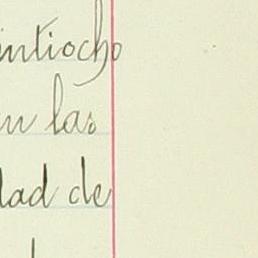 intiocho
n las
dad de